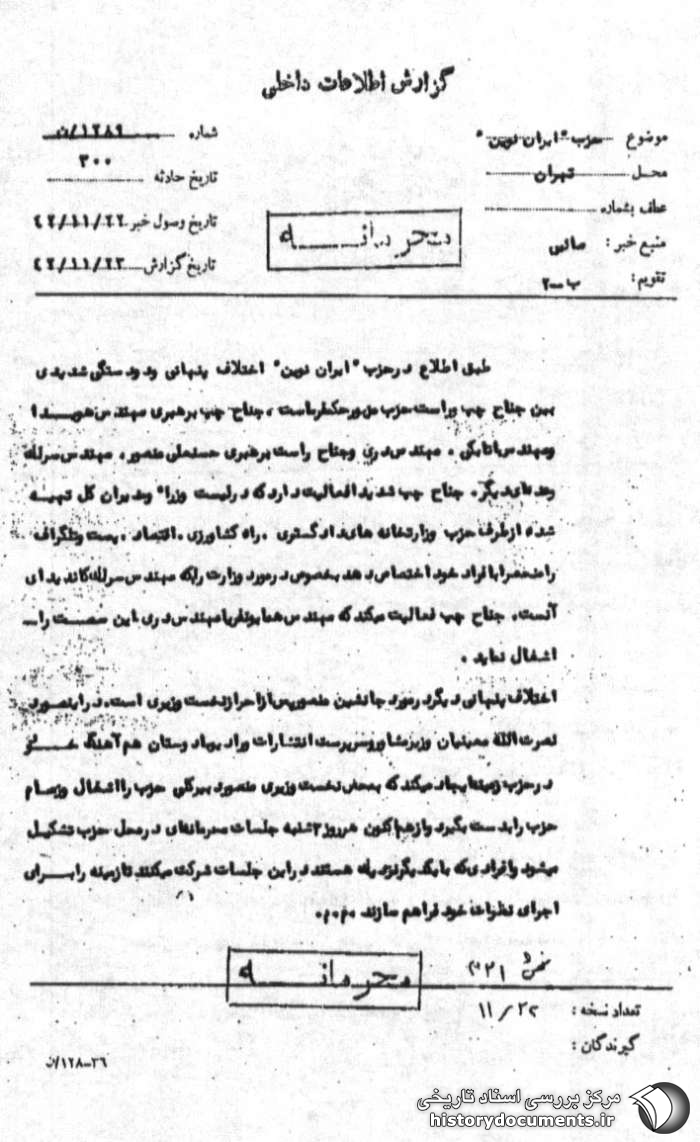 گزارش اطلاعات داخلی
موضوع حزب "ایران نوین"
محل تهران
عطف بشماره
منبع خبر : صالحی
تقویم : ب-۲
شماره ۱۲۸۹/ن
۳۰۰
تاریخ حادثه
تاریخ وصول خبر ۴۲/۱۱/۲۲
تاریخ گزارش ۴۲/۱۱/۲۳
محرمانه
طبق اطلاع در حزب "ایران نوین" اختلاف پنهانی و دودستگی شدیدی
بین جناح چپ و راست حزب مزبور حکمفرماست ، جناح چپ برهبری مهندس هویدا
و مهندس اتابکی ، مهندس دری و جناح راست برهبری حسنعلی منصور ، مهندس سرلک
و عده‌ای دیگر . جناح چپ شدیدا فعالیت دارد که در لیست وزراء و مدیران کل تهیه
شده از طرف حزب وزارتخانه های دادگستری . راه کشاورزی . اقتصاد . پست و تلگراف
را منحصرا بافراد خود اختصاص دهد بخصوص در مورد وزارت راه که مهندس سرلک کاندیدای
آنست . جناح چپ فعالیت میکند که مهندس همایونفر یا مهندس دری این سمت را
اشغال نماید .
اختلاف پنهانی دیگر در مورد جانشین منصور پس از احراز نخست وزیری است . در اینمورد
نصرت الله معینیان وزیر مشاور و سرپرست انتشارات و رادیو با دوستان هم آهنگ خود
در حزب زمینه ایجاد میکند که بمحض نخست وزیری منصور دبیرکلی حزب را اشغال و زمام
حزب را بدست بگیرد و از هم اکنون هر روز ۳ شنبه جلسات محرمانه‌ای در محل حزب تشکیل
میشود و افرادی که با یکدیگر نزدیک هستند در این جلسات شرکت میکنند تا زمینه را برای
اجرای نظرات خود فراهم سازند .م.م.
محرمانه
۱۱/۲۲
تعداد نسخه :
گیرندگان :
۱۲۸-۳۶/ن
مرکز بررسی اسناد تاریخی
historydocuments.ir